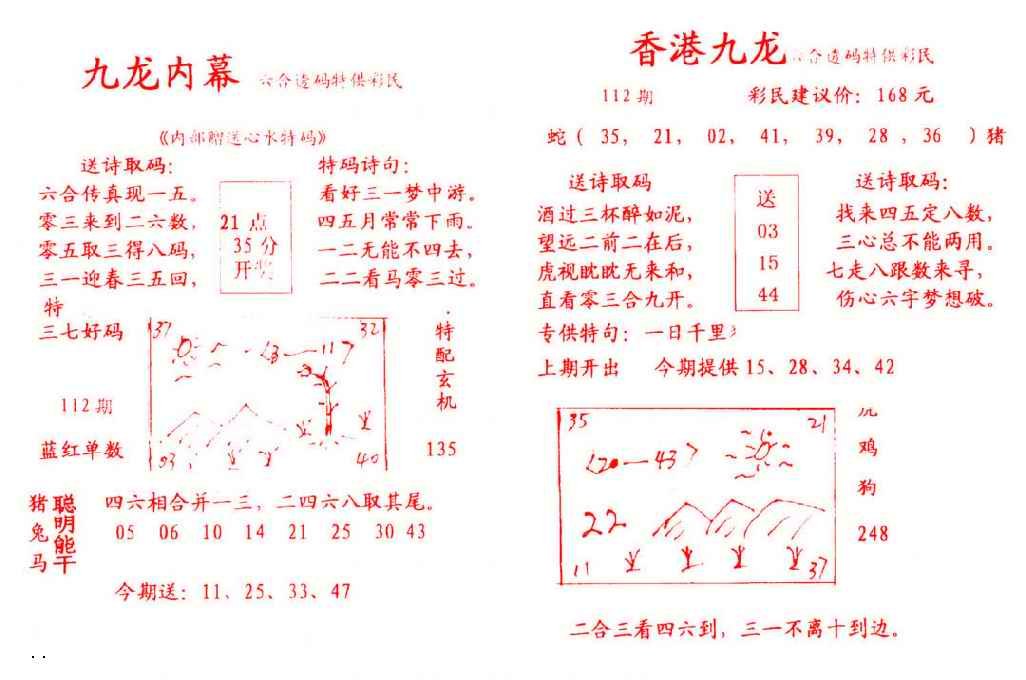 九龙内幕 六合透码特供彩民
《内部赠送心水特码》
送诗取码：
六合传真现一五。
零三来到二六数，
零五取三得八码，
三一迎春三五回，
特
三七好码
21 点
35 分
开奖
特码诗句：
看好三一梦中游。
四五月常常下雨。
一二无能不四去，
二二看马零三过。
37 32
13—11
93 40
特配玄机
135
112 期
蓝红单数
猪兔马
聪明能干
四六相合并一三，二四六八取其尾。
05 06 10 14 21 25 30 43
今期送：11、25、33、47
香港九龙 六合透码特供彩民
112 期 彩民建议价：168 元
蛇（ 35， 21， 02， 41， 39， 28 ，36 ）猪
送诗取码
酒过三杯醉如泥，
望远二前二在后，
虎视眈眈无来和，
直看零三合九开。
送
03
15
44
送诗取码：
找来四五定八数，
三心总不能两用。
七走八跟数来寻，
伤心六字梦想破。
专供特句：一日千里
上期开出 今期提供 15、28、34、42
35 21
20—43
22
11 37
虎
鸡
狗
248
二合三看四六到，三一不离十到边。